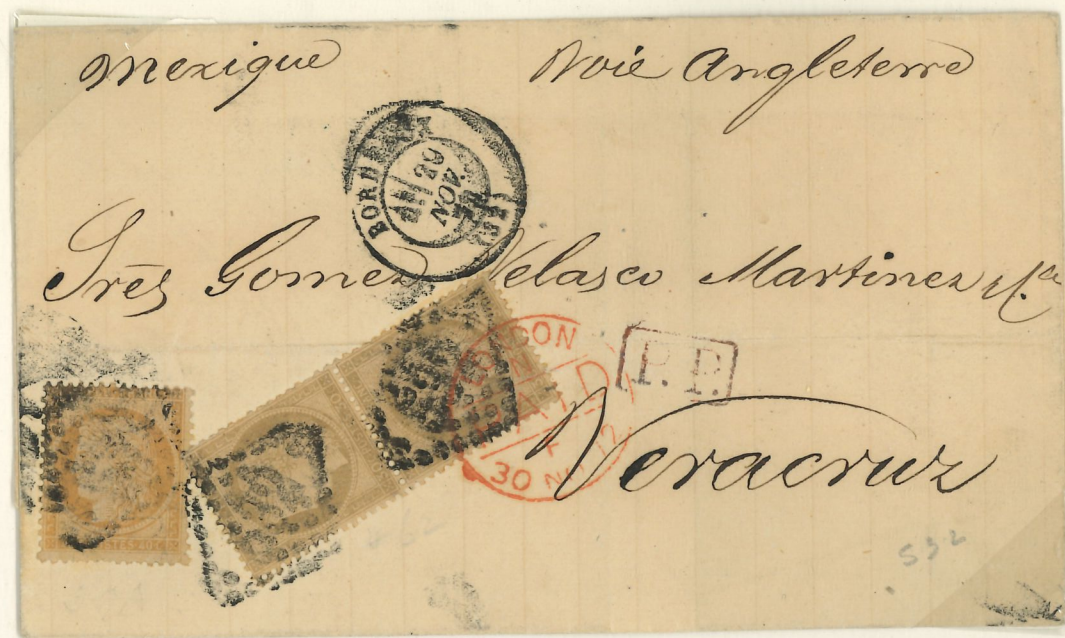 Mexique Voie Angleterre
BORDEAUX
29
NOV
Sres Gomez Velasco Martinez y Ca
LONDON
PAID
30 NO
P.P.
Veracruz
POSTES 40 C
532